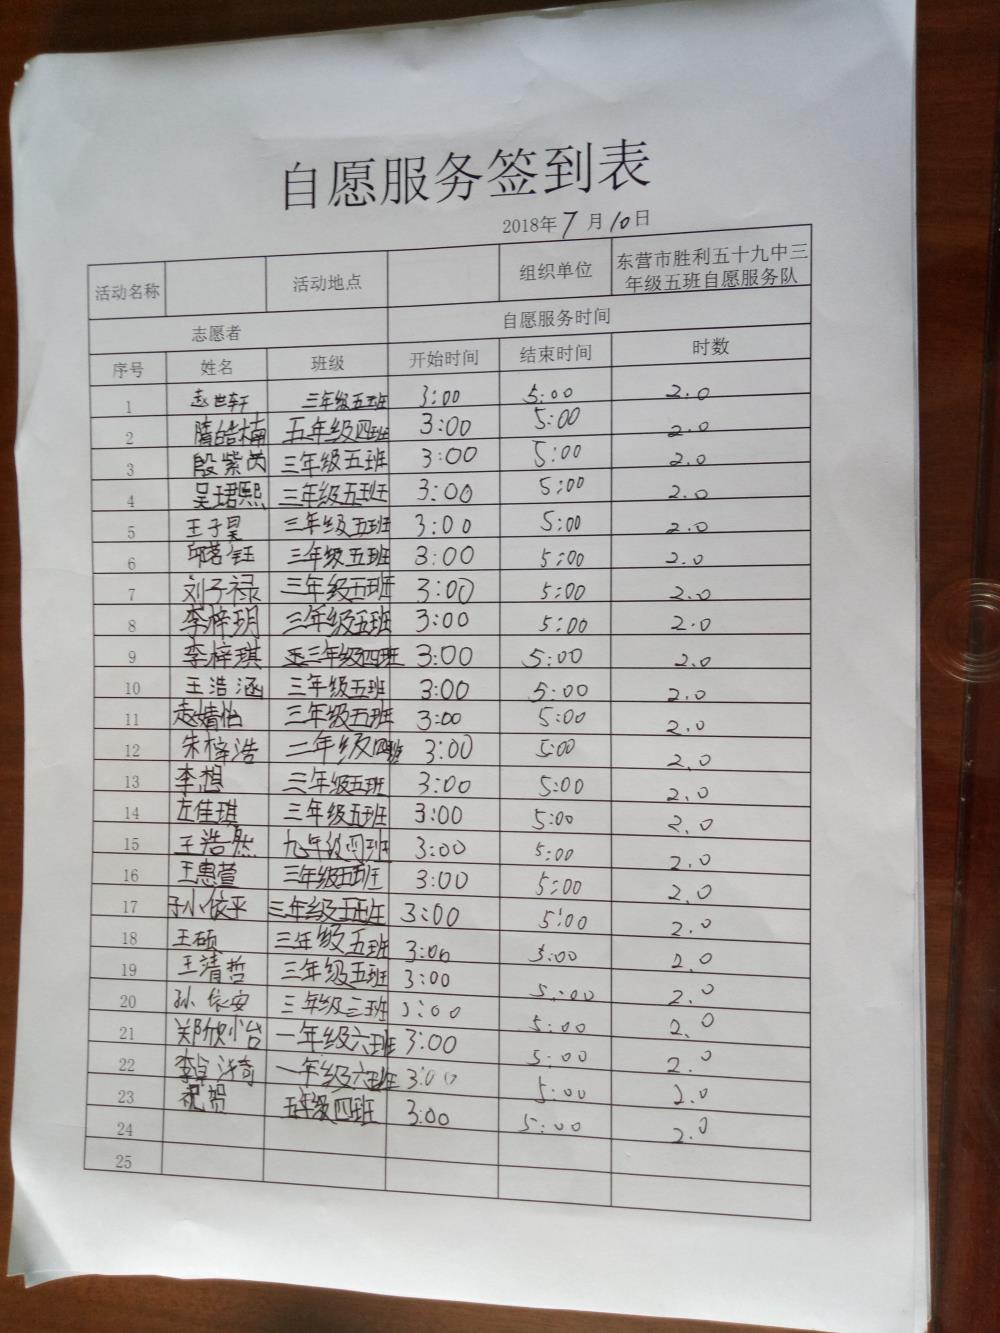 自愿服务签到表
2018年7月10日
活动名称 活动地点 组织单位 东营市胜利五十九中三
年级五班自愿服务队
志愿者 自愿服务时间
序号 姓名 班级 开始时间 结束时间 时数
1 赵世轩 三年级五班 3:00 5:00 2.0
2 隋皓楠 五年级四班 3:00 5:00 2.0
3 殷紫芮 三年级五班 3:00 5:00 2.0
4 吴珺熙 三年级五班 3:00 5:00 2.0
5 王子昊 三年级五班 3:00 5:00 2.0
6 邱茗钰 三年级五班 3:00 5:00 2.0
7 刘子禄 三年级五班 3:00 5:00 2.0
8 李梓玥 三年级五班 3:00 5:00 2.0
9 李梓琪 三年级四班 3:00 5:00 2.0
10 王浩涵 三年级五班 3:00 5:00 2.0
11 赵婧怡 三年级五班 3:00 5:00 2.0
12 朱梓浩 二年级四班 3:00 5:00 2.0
13 李想 三年级五班 3:00 5:00 2.0
14 左佳琪 三年级五班 3:00 5:00 2.0
15 王浩然 九年级四班 3:00 5:00 2.0
16 王惠萱 三年级五班 3:00 5:00 2.0
17 三年级五班 3:00 5:00 2.0
18 王硕 三年级五班 3:00 5:00 2.0
19 王靖哲 三年级五班 3:00 5:00 2.0
20 孙依安 三年级三班 3:00 5:00 2.0
21 郑欣怡 一年级六班 3:00 5:00 2.0
22 一年级六班 3:00 5:00 2.0
23 祝贺 五年级四班 3:00 5:00 2.0
24
25